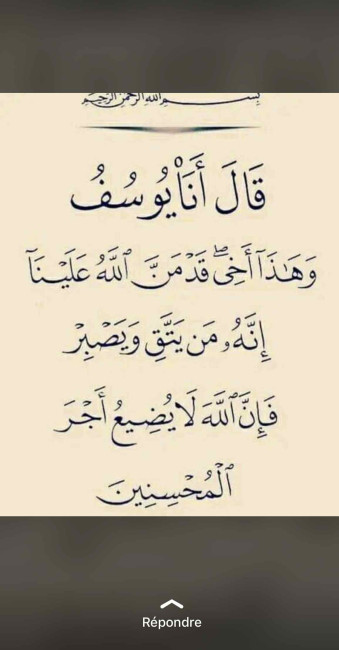 بسم الله الرحمن الرحيم
قَالَ أَنَا۠ يُوسُفُ
وَهَـٰذَآ أَخِى ۖ قَدْ مَنَّ ٱللَّهُ عَلَيْنَآ
إِنَّهُۥ مَن يَتَّقِ وَيَصْبِرْ
فَإِنَّ ٱللَّهَ لَا يُضِيعُ أَجْرَ
ٱلْمُحْسِنِينَ
Répondre